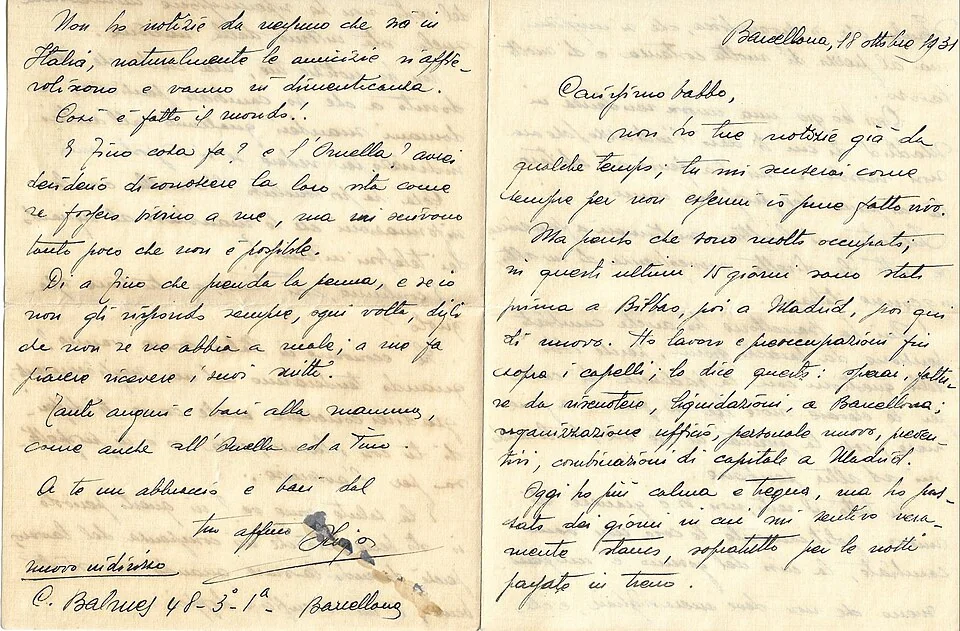 Barcellona, 18 ottobre 1931
Carissimo babbo,
non ho tue notizie già da
qualche tempo; tu mi scuserai come
sempre per non essermi io pure fatto vivo.
Ma pensa che sono molto occupato;
in questi ultimi 15 giorni sono stato
prima a Bilbao, poi a Madrid, poi qui
di nuovo. Ho lavoro e preoccupazioni fin
sopra i capelli; lo dice questo: , fattu-
re da riscuotere, liquidazioni, a Barcellona;
organizzazione ufficio, personale nuovo, preven-
tivi, combinazioni di capitale a Madrid.
Oggi ho più calma e tregua, ma ho pas-
sato dei giorni in cui mi sentivo vera-
mente stanco, sopratutto per le notti
passate in treno.
Non ho notizie da nessuno che sia in
Italia; naturalmente le amicizie si affie-
voliscono e vanno in dimenticanza.
Così è fatto il mondo!.
E Tino cosa fa? e l'Ornella? avrei
desiderio di conoscere la loro vita come
se fossero vicino a me, ma mi scrivono
tanto poco che non è possibile.
Di a Tino che prenda la penna, e se io
non gli rispondo sempre, ogni volta, digli
che non se ne abbia a male; a me fa
piacere ricevere i suoi scritti.
Tanti auguri e baci alla mamma,
come anche all'Ornella ed a Tino.
A te un abbraccio e baci dal
tuo affmo
nuovo indirizzo
C. Balmes 48-3º-1ª - Barcellona